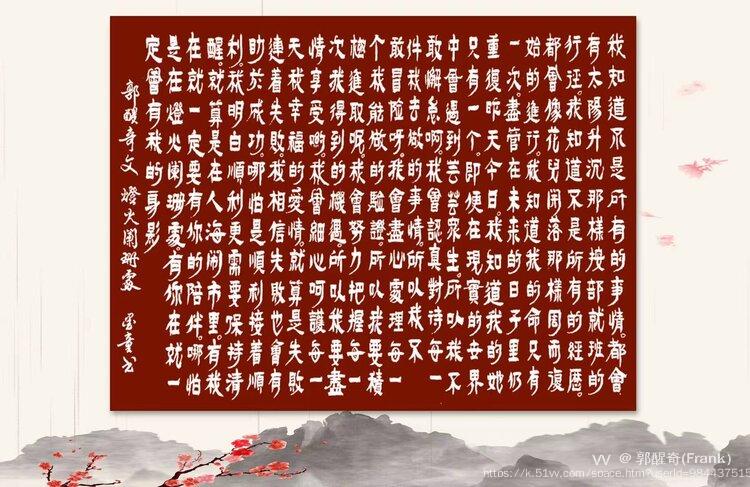 我知道不是所有的事情。都會
有太陽升沉那樣按部就班的
行迳。我知道不是所有的經歷。
都會像花兒開落那樣周而復
始的進行。我知道我的命只有
一次。盡管在未來的日子里仍
重復昨天今日。我知道我的她
只有一个。即使在現實的世界
中會遇到芸芸眾生。所以我不
敢懈怠啊。我會認真對待每一
件我去做的事情。所以我不
敢冒險呀。我會盡心處理每一
个我能做的驗證。所以我要積
極進取呢。我會努力把握每一
次我得到的機遇。所以我要盡
情享受喲。我會細心呵護每一
天我幸福的愛情。就算是失敗
連着失敗。我相信失敗也會有
助於成功。哪怕是順利接着順
利。我明白順利更需要保持清
醒。就算是在人海鬧市里。有我
在就一定要有你的陪伴。哪怕
是在燈火闌珊處。有你在就一
定會有我的身影
郭醒奇文 燈火闌珊處
VV @ 郭醒奇(Frank)
https://k.51vv.com/space.htm?userId=984437515